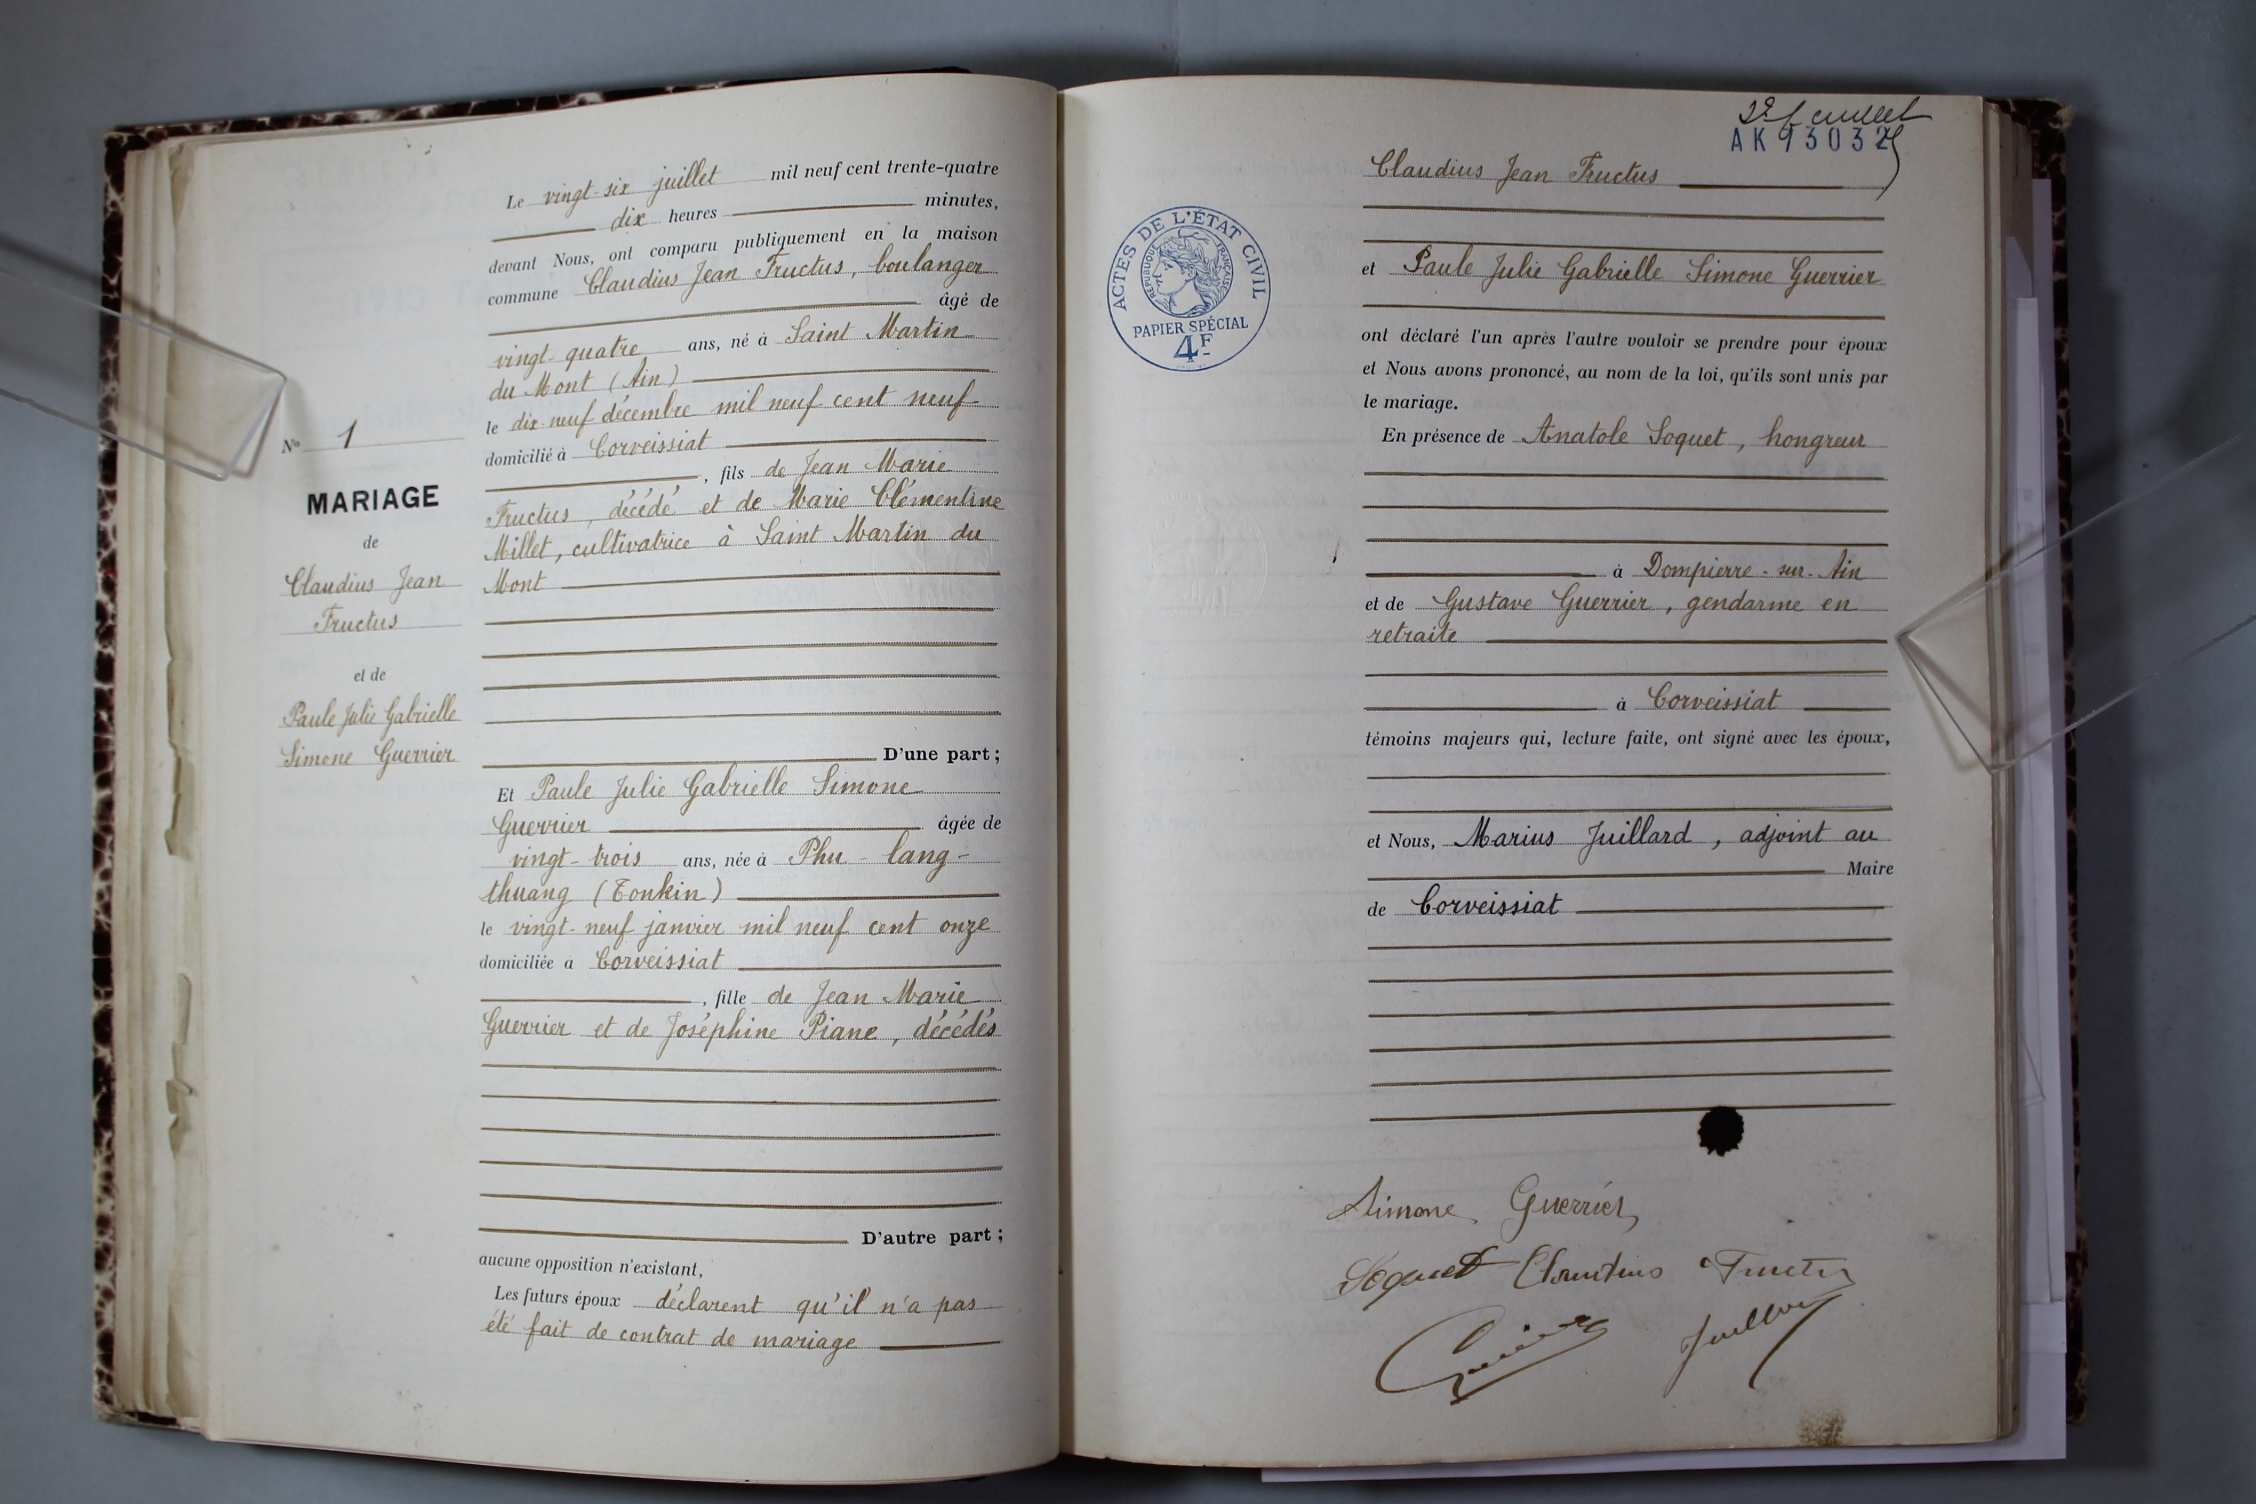 Le vingt-six juillet mil neuf cent trente-quatre
dix heures minutes,
devant Nous, ont comparu publiquement en la maison
commune Claudius Jean Fructus, boulanger
âgé de
vingt-quatre ans, né à Saint Martin
du Mont (Ain)
le dix-neuf décembre mil neuf cent neuf
domicilié à Corveissiat
, fils de Jean Marie
Fructus, décédé et de Marie Clémentine
Millet, cultivatrice à Saint Martin du
Mont
D'une part ;
Et Paule Julie Gabrielle Simone
Guerrier âgée de
vingt-trois ans, née à Phu-lang-
thuang (Tonkin)
le vingt-neuf janvier mil neuf cent onze
domiciliée à Corveissiat
, fille de Jean Marie
Guerrier et de Joséphine Piane, décédés
D'autre part ;
aucune opposition n'existant,
Les futurs époux déclarent qu'il n'a pas
été fait de contrat de mariage
No 1
MARIAGE
de
Claudius Jean
Fructus
et de
Paule Julie Gabrielle
Simone Guerrier
2e feuillet
AK 93032
ACTES DE L'ÉTAT CIVIL
RÉPUBLIQUE FRANÇAISE
PAPIER SPÉCIAL
4F
Claudius Jean Fructus
et Paule Julie Gabrielle Simone Guerrier
ont déclaré l'un après l'autre vouloir se prendre pour époux
et Nous avons prononcé, au nom de la loi, qu'ils sont unis par
le mariage.
En présence de Anatole Soquet, hongreur
à Dompierre-sur-Ain
et de Gustave Guerrier, gendarme en
retraite
à Corveissiat
témoins majeurs qui, lecture faite, ont signé avec les époux,
et Nous, Marius Juillard, adjoint au
Maire
de Corveissiat
Simone Guerrier
Soquet Claudius Fructus
Guerrier Juillard